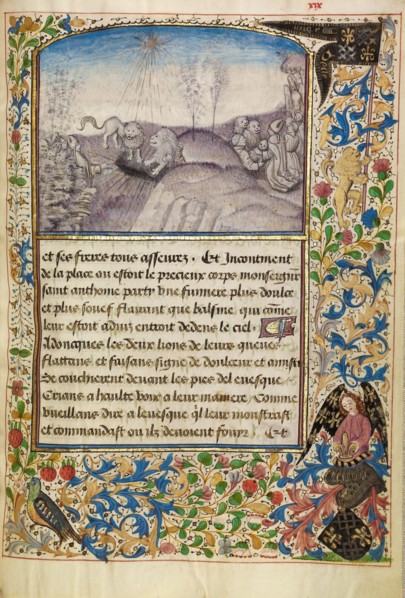 xix
et ses freres tous asseurez. Et Incontinent
de la place ou estoit le precieux corps monseigneur
saint anthoine party vne fumiere plus doulce
et plus souef flairant que balsme, qui come
leur estoit aduiz entroit dedens le ciel.
Adoncques les deux lions de leurs queues
flattans et faisans signe de doulceur et amistie
Se coucherent deuant les pies de leuesque
Crians a haulte voix a leur maniere, Comme
vueillans dire a leuesque ql leur monstrast
et commandast ou ilz deuoient fouyr. Et